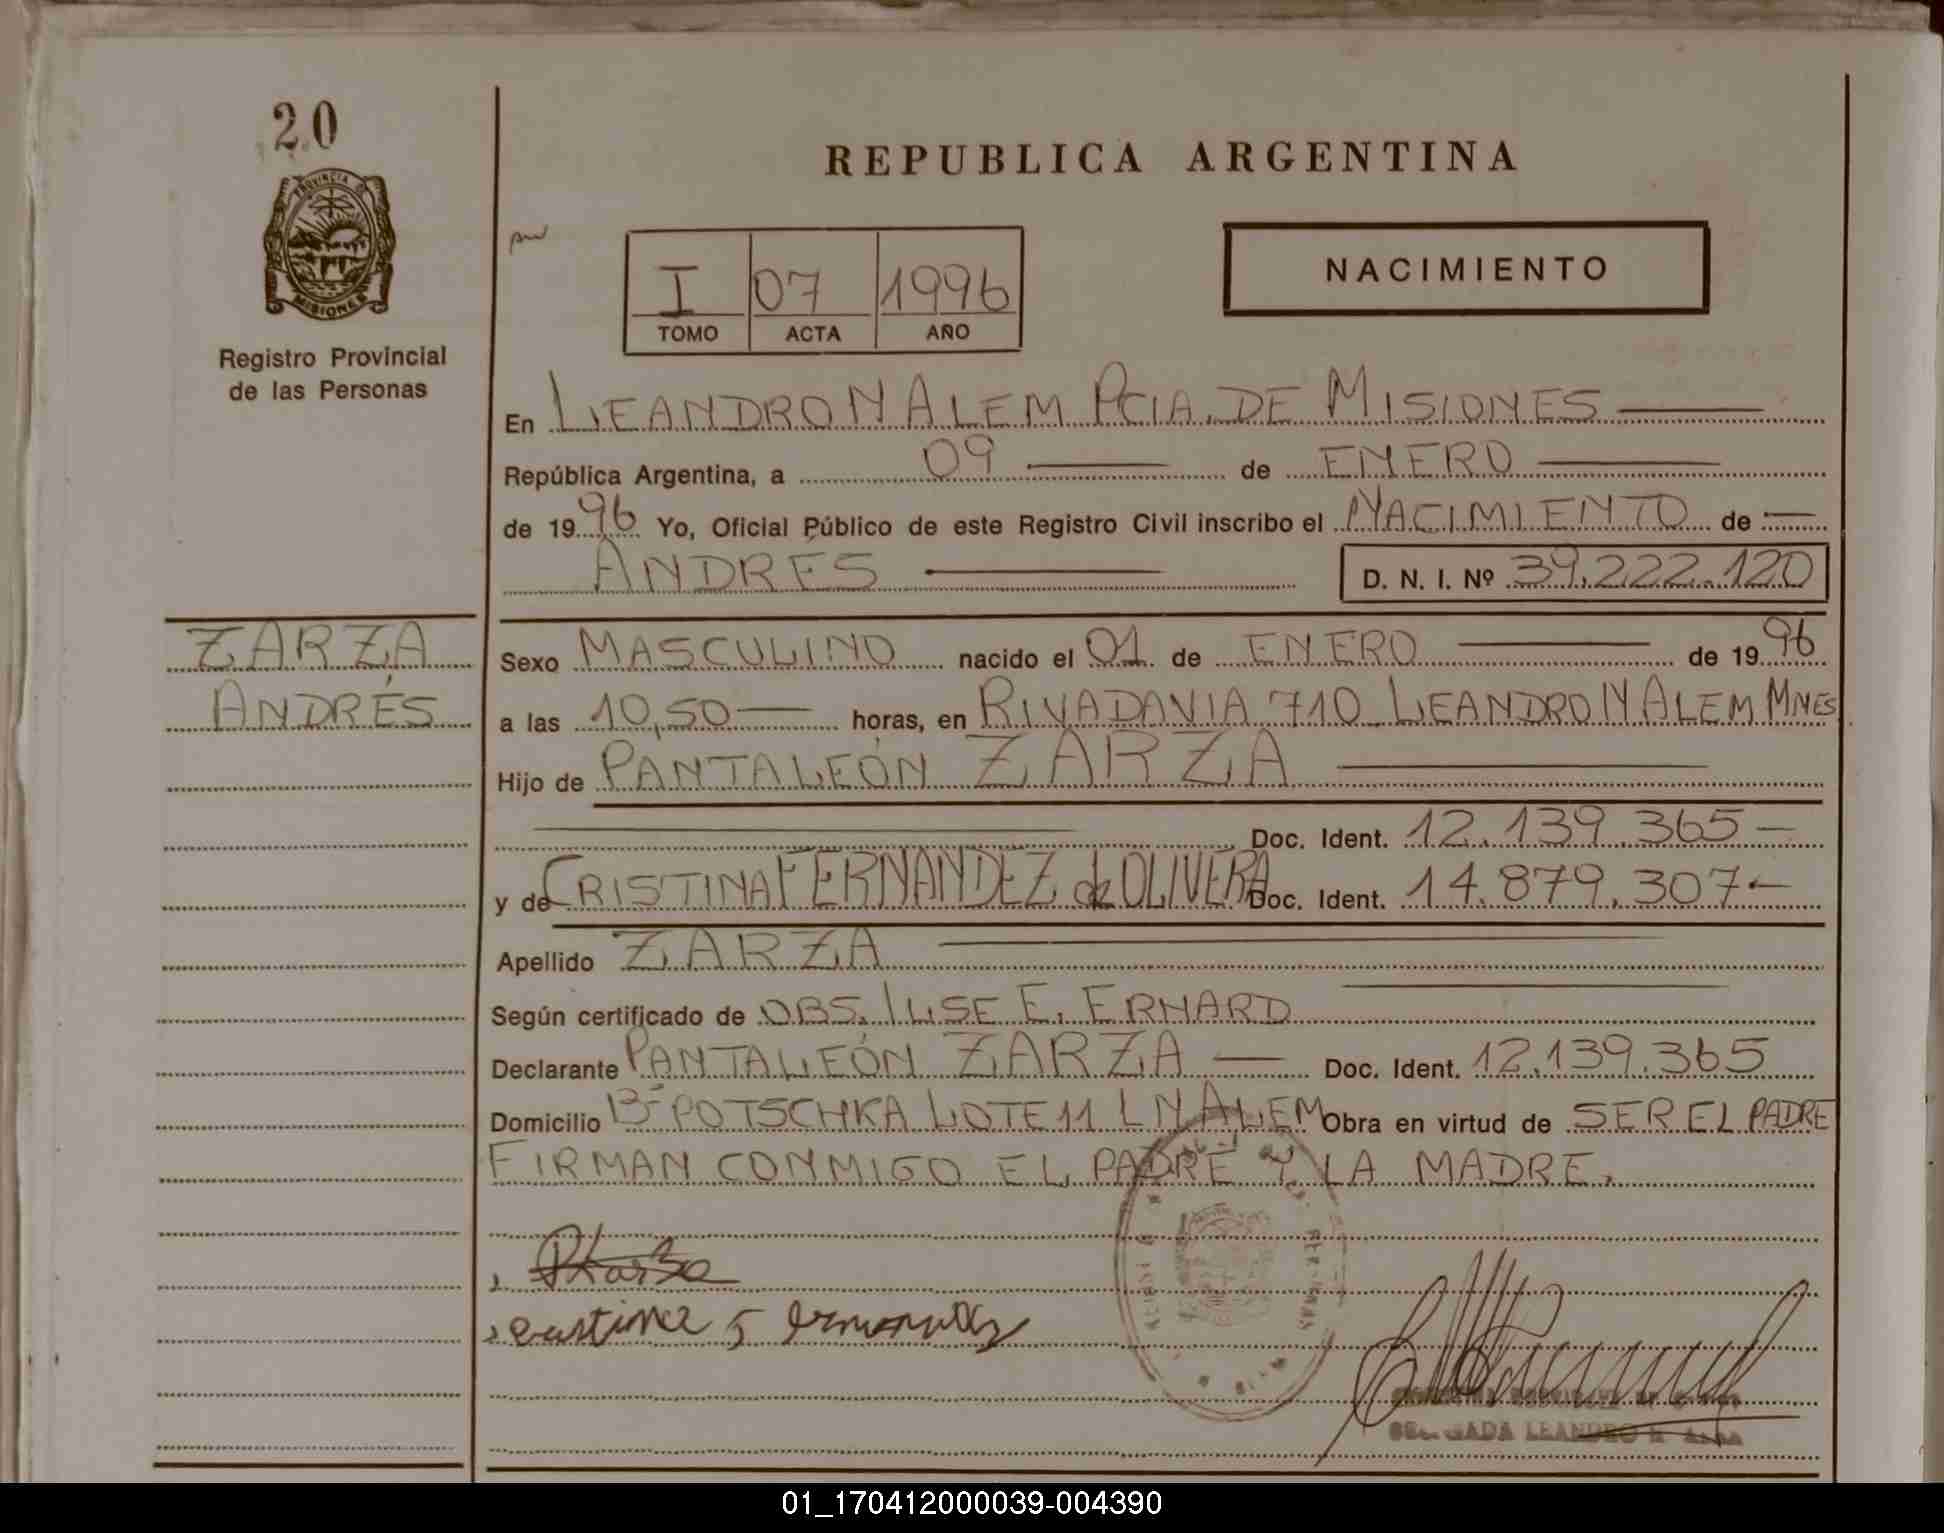 20
PROVINCIA DE
MISIONES
Registro Provincial
de las Personas
ZARZA
ANDRÉS
REPUBLICA ARGENTINA
I 07 1996
TOMO ACTA AÑO
NACIMIENTO
En LEANDRO N ALEM PCIA. DE MISIONES
República Argentina, a 09 de ENERO
de 1996 Yo, Oficial Público de este Registro Civil inscribo el NACIMIENTO de
ANDRÉS D. N. I. Nº 39.222.120
Sexo MASCULINO nacido el 01 de ENERO de 1996
a las 10,50 horas, en RIVADAVIA 710 LEANDRO N ALEM MNES
Hijo de PANTALEÓN ZARZA
Doc. Ident. 12.139.365
y de CRISTINA FERNANDEZ de OLIVERA Doc. Ident. 14.879.307
Apellido ZARZA
Según certificado de OBS. ILSE E. ERHARD
Declarante PANTALEÓN ZARZA Doc. Ident. 12.139.365
Domicilio Bº POTSCHKA LOTE 11 L N ALEM Obra en virtud de SER EL PADRE
FIRMAN CONMIGO EL PADRE Y LA MADRE.
01_170412000039-004390